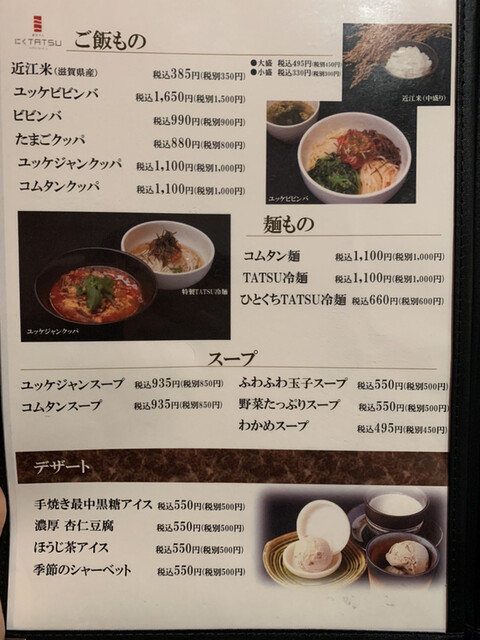 にくTATSU
ご飯もの
近江米(滋賀県産) 税込385円(税別350円)
●大盛 税込495円(税別450円)
●小盛 税込330円(税別300円)
ユッケビビンバ 税込1,650円(税別1,500円)
ビビンバ 税込990円(税別900円)
たまごクッパ 税込880円(税別800円)
ユッケジャンクッパ 税込1,100円(税別1,000円)
コムタンクッパ 税込1,100円(税別1,000円)
近江米(中盛り)
ユッケビビンバ
麺もの
コムタン麺 税込1,100円(税別1,000円)
TATSU冷麺 税込1,100円(税別1,000円)
ひとくちTATSU冷麺 税込660円(税別600円)
特製TATSU冷麺
ユッケジャンクッパ
スープ
ユッケジャンスープ 税込935円(税別850円)
コムタンスープ 税込935円(税別850円)
ふわふわ玉子スープ 税込550円(税別500円)
野菜たっぷりスープ 税込550円(税別500円)
わかめスープ 税込495円(税別450円)
デザート
手焼き最中黒糖アイス 税込550円(税別500円)
濃厚 杏仁豆腐 税込550円(税別500円)
ほうじ茶アイス 税込550円(税別500円)
季節のシャーベット 税込550円(税別500円)